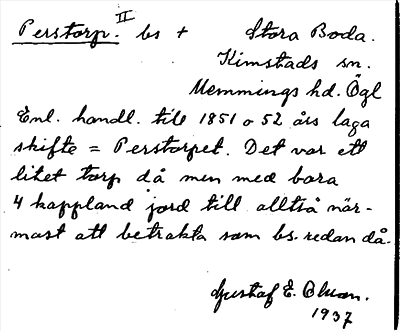 Perstorp. II bs + Stora Boda.
Kimstads sn.
Memmings hd. Ögl
Enl. handl. till 1851 o 52 års laga
skifte = Perstorpet. Det var ett
litet torp då men med bara
4 kappland jord till alltså när-
mast att betrakta som bs. redan då.
Gustaf E. Olson.
1937